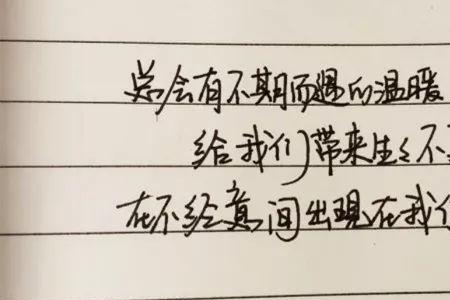 总会有不期而遇的温暖
给我们带来生生不
在不经意间出现在我们